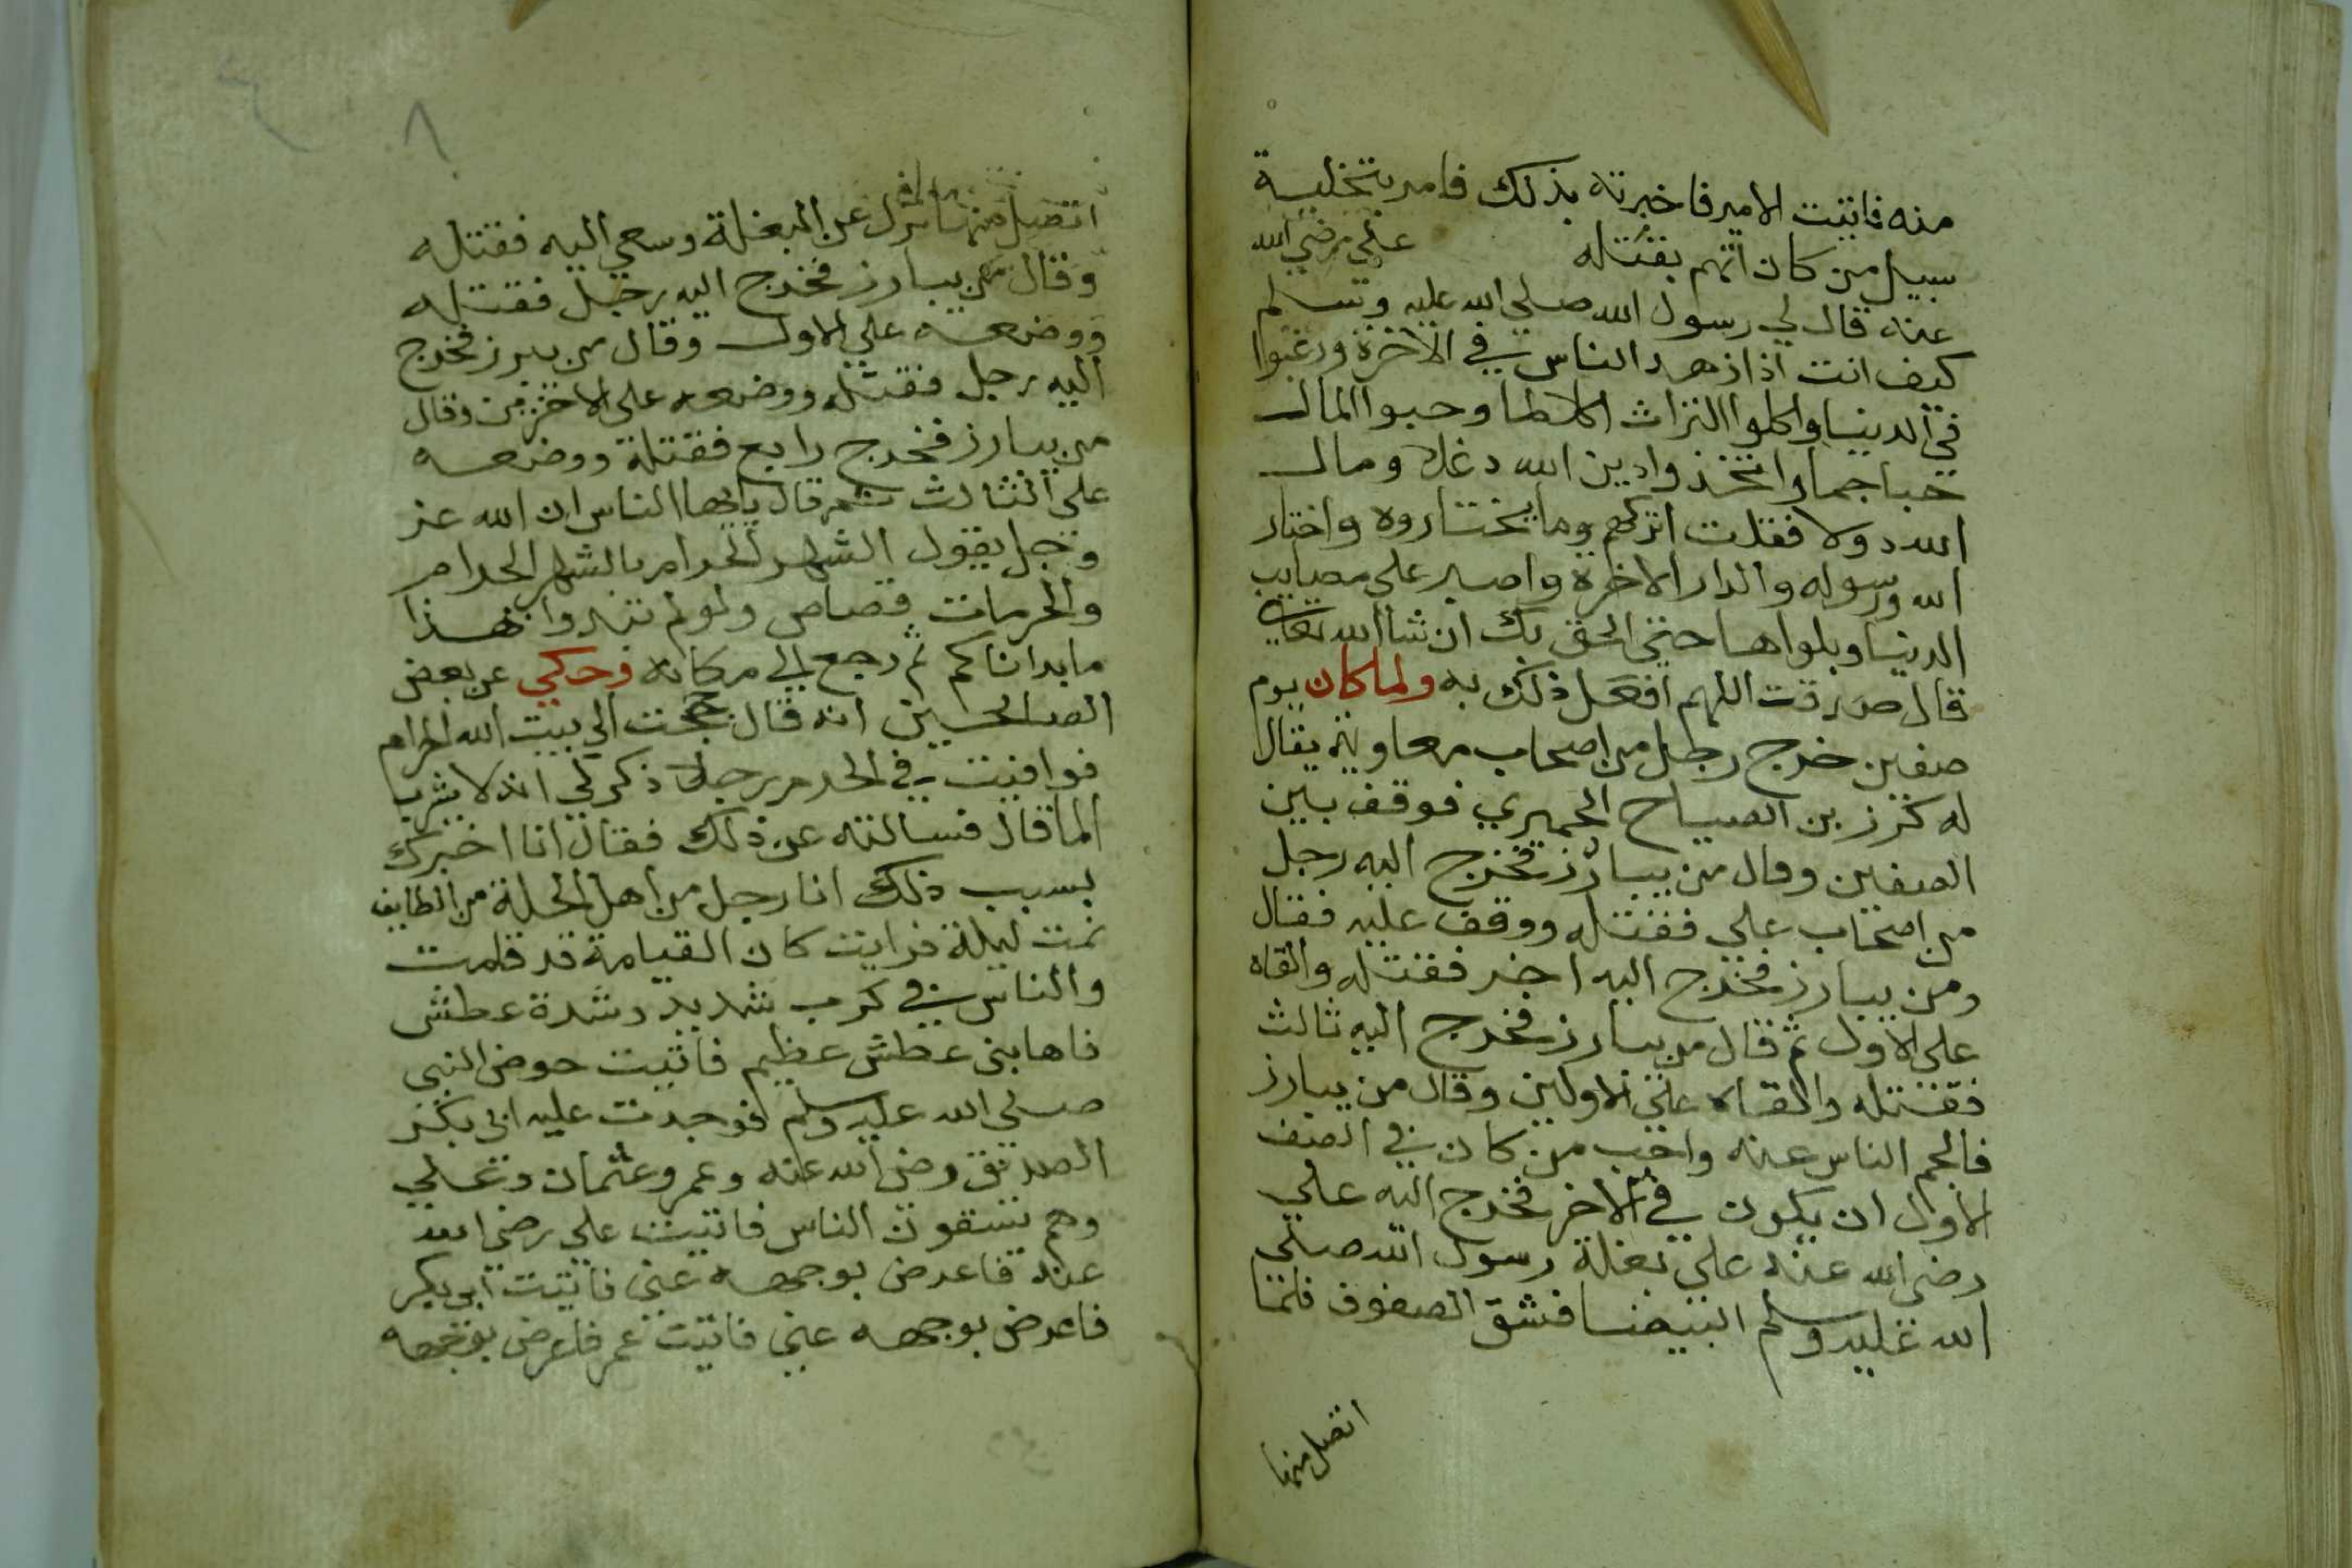 منه فاتيت الامير فاخبرته بذلك فامر بتخلية
سبيل من كان اتهم بقتله علي رضي الله
عنه قال لي رسول الله صلي الله عليه وسلم
كيف انت اذا زهد الناس في الاخرة ورغبوا
في الدنيا واكلوا التراث اكلا لما وحبوا المال
حبا جما واتخذوا دين الله دغلا ومال
الله دولا فقلت اتركهم وما يختاروه واختار
الله ورسوله والدار الاخرة واصبر علي مصايب
الدنيا وبلواها حتي الحق بك ان شا الله تعالي
قال صدقت اللهم افعل ذلك به ولما كان يوم
صفين خرج رجل من اصحاب معاوية يقال
له كرز بن الصباح الحميري فوقف بين
الصفين وقال من يبارز فخرج اليه رجل
من اصحاب علي فقتله ووقف عليه فقال
ومن يبارز فخرج اليه اخر فقتله والقاه
علي الاول ثم قال من يبارز فخرج اليه ثالث
فقتله والقاه علي الاولين وقال من يبارز
فالجم الناس عنه واحب من كان في الصف
الاول ان يكون في الاخر فخرج اليه علي
رضي الله عنه علي بغلة رسول الله صلي
الله عليه وسلم البيضا فشق الصفوف فلما
اتصل منها
٨
اتصل منها نزل عن البغلة وسعي اليه فقتله
وقال من يبارز فخرج اليه رجل فقتله
ووضعه علي الاول وقال من يبرز فخرج
اليه رجل فقتله ووضعه علي الاخرين وقال
من يبارز فخرج رابع فقتله ووضعه
علي الثالث ثم قال يايها الناس ان الله عز
وجل يقول الشهر الحرام بالشهر الحرام
والحرمات قصاص ولو لم تبدوا بهذا
ما بداناكم ثم رجع الي مكانه وحكي عن بعض
الصالحين انه قال حججت الي بيت الله الحرام
فوافيت في الحرم رجلا ذكر لي انه لا يشرب
الما قال فسالته عن ذلك فقال انا اخبرك
بسبب ذلك انا رجل من اهل الحلة من الطايف
نمت ليلة فرايت كان القيامة قد قامت
والناس في كرب شديد وشدة عطش
فاصابني عطش عظيم فاتيت حوض النبي
صلي الله عليه وسلم فوجدت عليه ابي بكر
الصديق رضي الله عنه وعمر وعثمان وعلي
وهم يسقون الناس فاتيت علي رضي الله
عنه فاعرض بوجهه عني فاتيت ابي بكر
فاعرض بوجهه عني فاتيت عمر فاعرض بوجهه